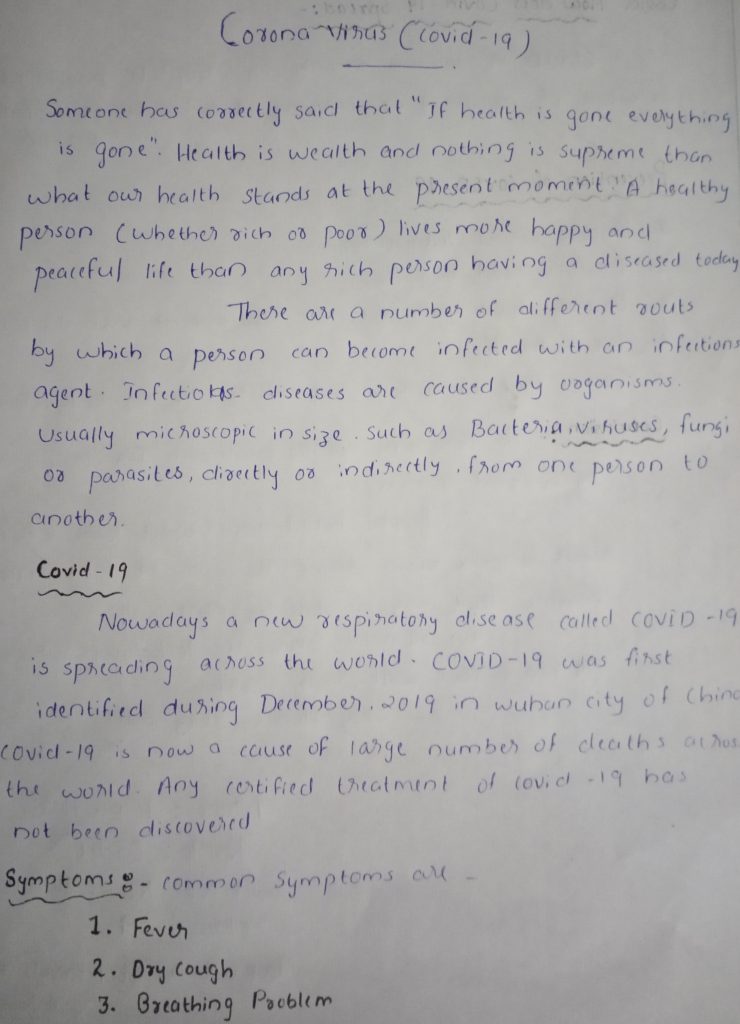 Corona Virus (Covid-19)
Someone has correctly said that "If health is gone everything
is gone". Health is wealth and nothing is supreme than
what our health stands at the present moment. A healthy
person (whether rich or poor) lives more happy and
peaceful life than any rich person having a diseased today
There are a number of different routs
by which a person can become infected with an infections
agent. Infectious diseases are caused by organisms.
Usually microscopic in size. Such as Bacteria, viruses, fungi
or parasites, directly or indirectly, from one person to
another.
Covid-19
Nowadays a new respiratory disease called COVID-19
is spreading across the world. COVID-19 was first
identified during December, 2019 in wuhan city of China
Covid-19 is now a cause of large number of deaths across
the world. Any certified treatment of covid-19 has
not been discovered
Symptoms :- common symptoms are -
1. Fever
2. Dry cough
3. Breathing Problem